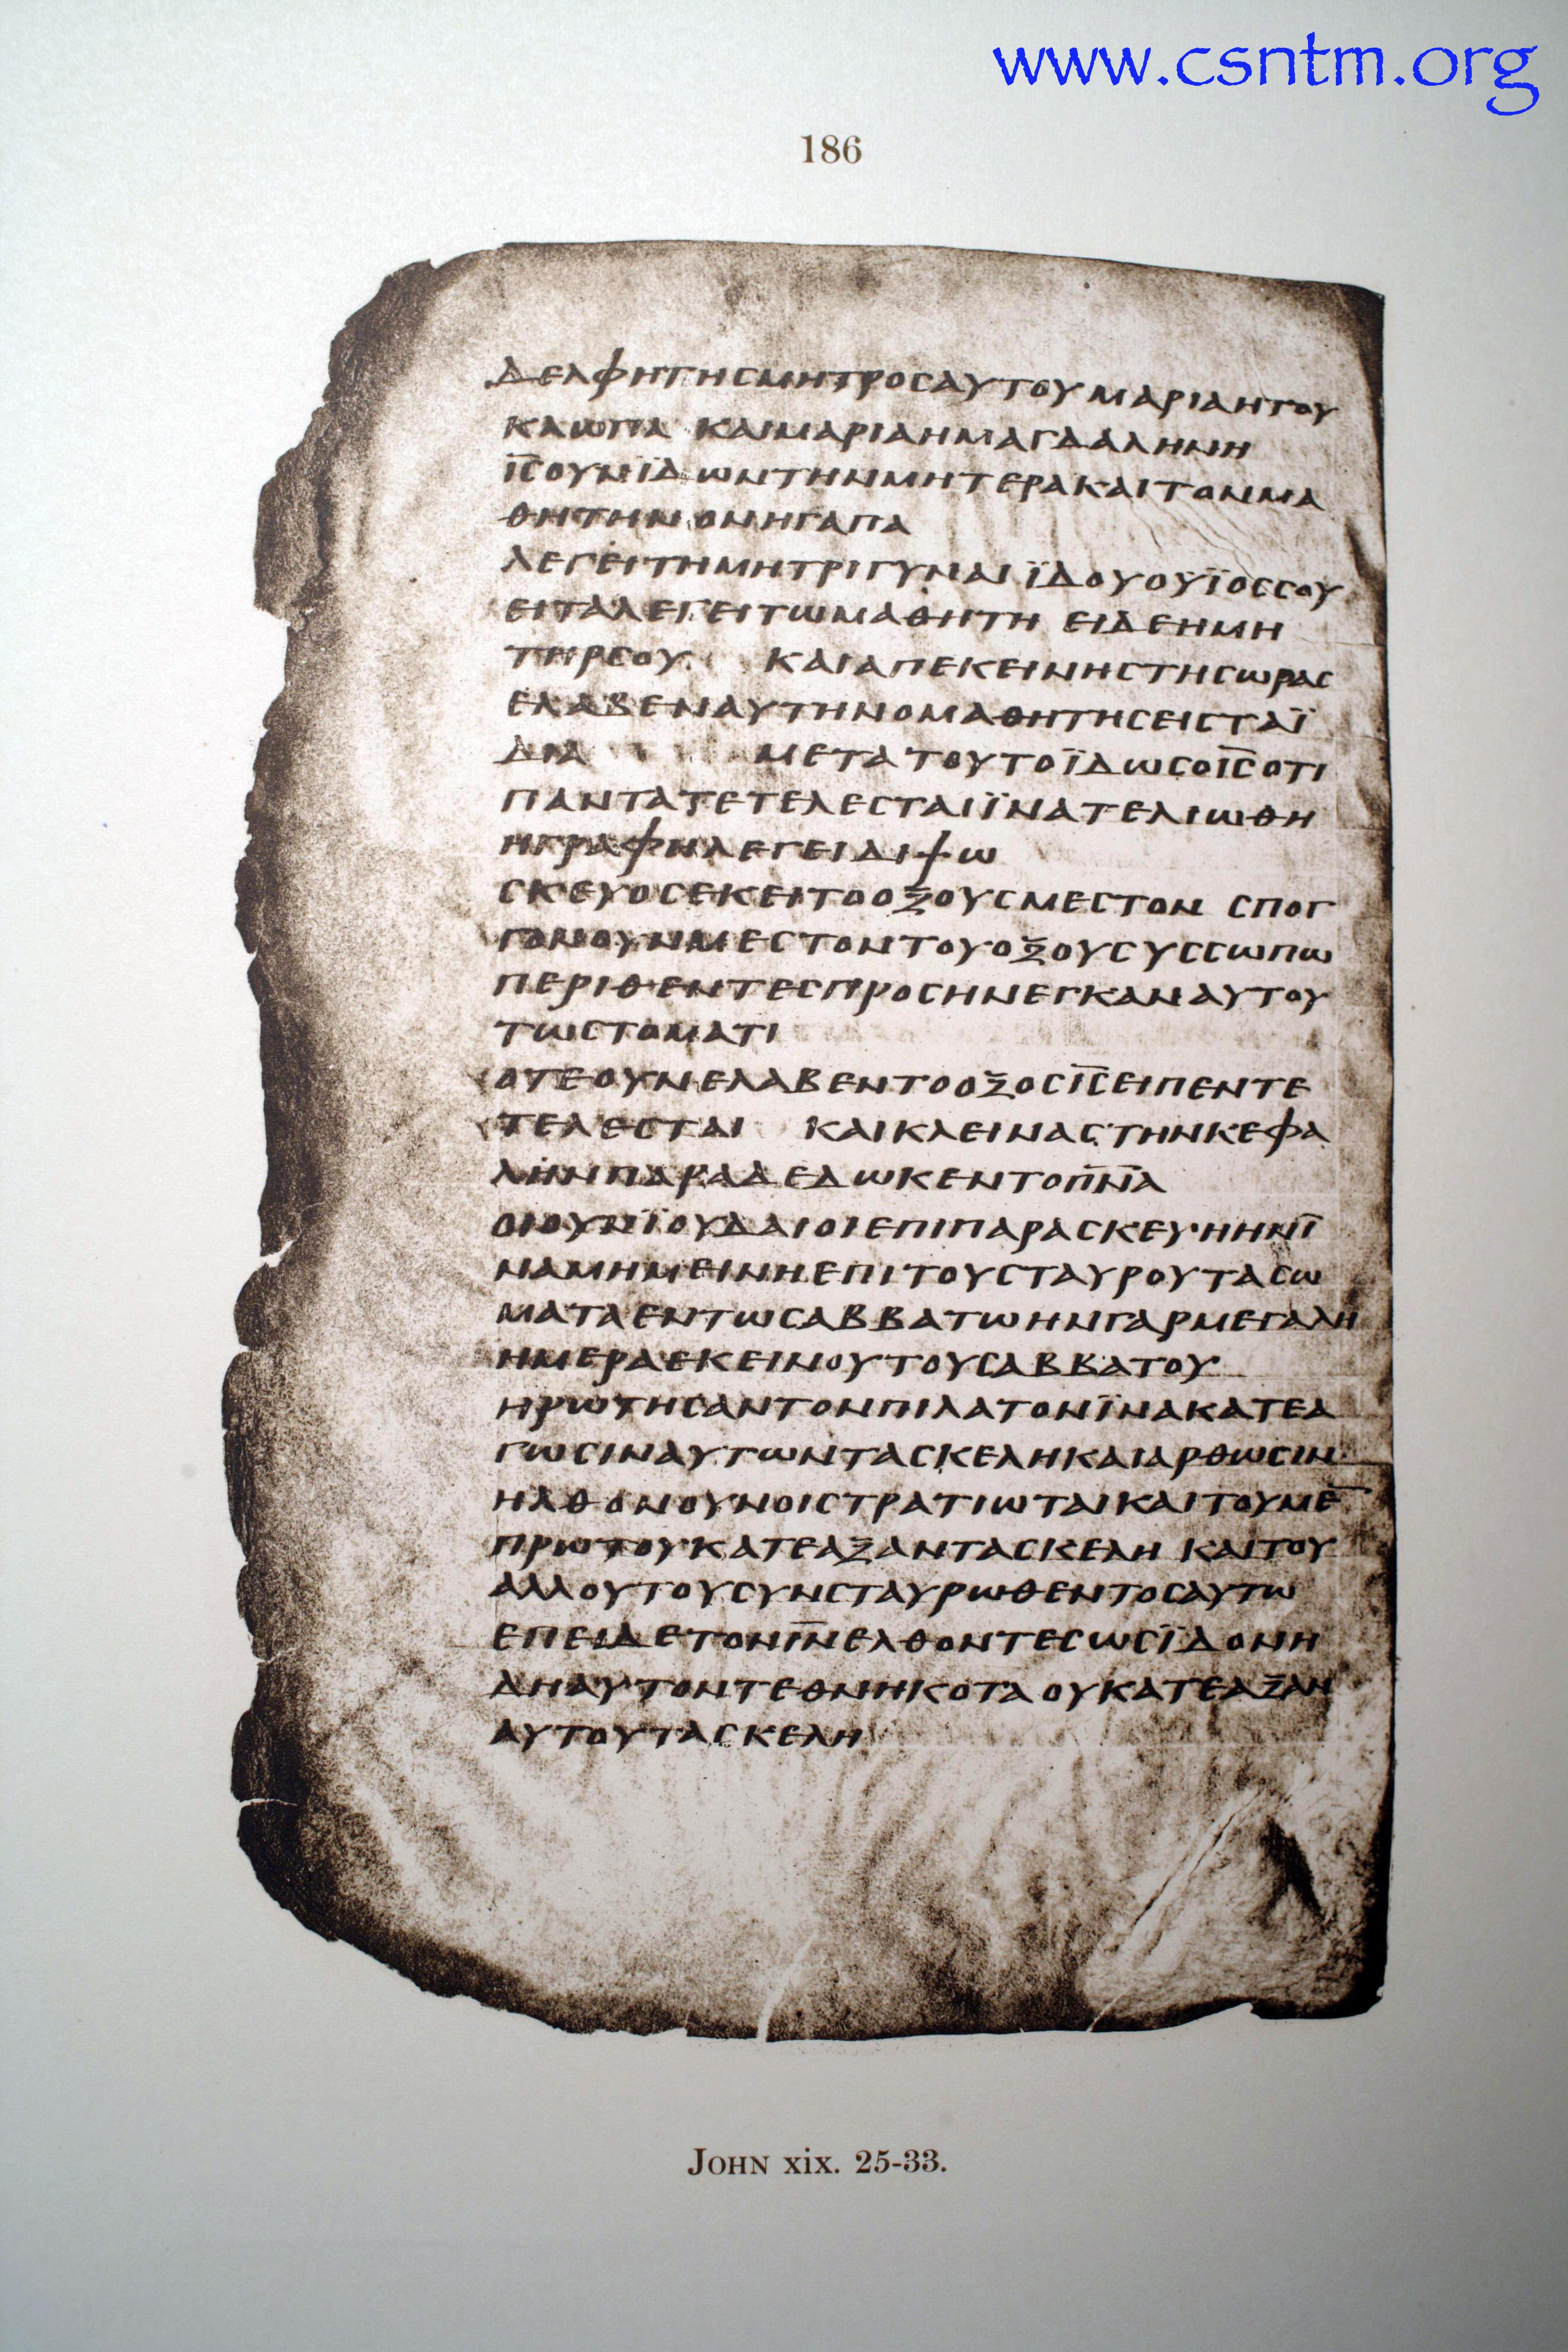 www.csntm.org
186
ΔΕΛΦΗΤΗϹΜΗΤΡΟϹΑΥΤΟΥΜΑΡΙΑΗΤΟΥ
ΚΛΩΠΑ ΚΑΙΜΑΡΙΑΗΜΑΓΔΑΛΗΝΗ
ΙϹ̅ΟΥΝΪΔΩΝΤΗΝΜΗΤΕΡΑΚΑΙΤΟΝΜΑ
ΘΗΤΗΝ ΟΝΗΓΑΠΑ
ΛΕΓΕΙΤΗΜΗΤΡΙΓΥΝΑΙ ΪΔΟΥΟΫΪΟϹϹΟΥ
ΕΙΤΑΛΕΓΕΙΤΩΜΑΘΗΤΗ ΕΙΔΕΗΜΗ
ΤΗΡϹΟΥ ΚΑΙΑΠΕΚΕΙΝΗϹΤΗϹΩΡΑϹ
ΕΛΑΒΕΝΑΥΤΗΝΟΜΑΘΗΤΗϹΕΙϹΤΑΪ
ΔΙΑ ΜΕΤΑΤΟΥΤΟΪΔΩϹΟΙϹ̅ΟΤΙ
ΠΑΝΤΑΤΕΤΕΛΕϹΤΑΙΪΝΑΤΕΛΙΩΘΗ
ΗΓΡΑΦΗΛΕΓΕΙΔΙΨΩ
ϹΚΕΥΟϹΕΚΕΙΤΟΟΞΟΥϹΜΕϹΤΟΝ ϹΠΟΓ
ΓΟΝΟΥΝΜΕϹΤΟΝΤΟΥΟΞΟΥϹΥϹϹΩΠΩ
ΠΕΡΙΘΕΝΤΕϹΠΡΟϹΗΝΕΓΚΑΝΑΥΤΟΥ
ΤΩϹΤΟΜΑΤΙ
ΟΤΕΟΥΝΕΛΑΒΕΝΤΟΟΞΟϹΙϹ̅ΕΙΠΕΝΤΕ
ΤΕΛΕϹΤΑΙ ΚΑΙΚΛΕΙΝΑϹΤΗΝΚΕΦΑ
ΛΗΝΠΑΡΑΔΕΔΩΚΕΝΤΟΠ̅Ν̅Α̅
ΟΙΟΥΝΪΟΥΔΑΙΟΙΕΠΙΠΑΡΑϹΚΕΥΗΗΝΪ
ΝΑΜΗΜΕΙΝΗΕΠΙΤΟΥϹΤΑΥΡΟΥΤΑϹΩ
ΜΑΤΑΕΝΤΩϹΑΒΒΑΤΩΗΝΓΑΡΜΕΓΑΛΗ
ΗΜΕΡΑΕΚΕΙΝΟΥΤΟΥϹΑΒΒΑΤΟΥ
ΗΡΩΤΗϹΑΝΤΟΝΠΙΛΑΤΟΝΪΝΑΚΑΤΕΑ
ΓΩϹΙΝΑΥΤΩΝΤΑϹΚΕΛΗΚΑΙΑΡΘΩϹΙΝ
ΗΛΘΟΝΟΥΝΟΙϹΤΡΑΤΙΩΤΑΙΚΑΙΤΟΥΜΕ̅
ΠΡΩΤΟΥΚΑΤΕΑΞΑΝΤΑϹΚΕΛΗ ΚΑΙΤΟΥ
ΑΛΛΟΥΤΟΥϹΥΝϹΤΑΥΡΩΘΕΝΤΟϹΑΥΤΩ
ΕΠΕΙΔΕΤΟΝΙΝ̅ΕΛΘΟΝΤΕϹΩϹΪΔΟΝΗ
ΔΗΑΥΤΟΝΤΕΘΝΗΚΟΤΑ ΟΥΚΑΤΕΑΞΑΝ
ΑΥΤΟΥΤΑϹΚΕΛΗ
JOHN xix. 25-33.